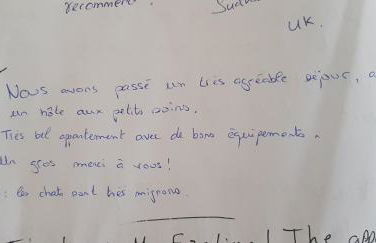 recommend.
UK.
Nous avons passé un très agréable séjour, a
un hôte aux petits soins.
Très bel appartement avec de bons équipements.
Un gros merci à vous!
: les chats sont très mignons.
! The app